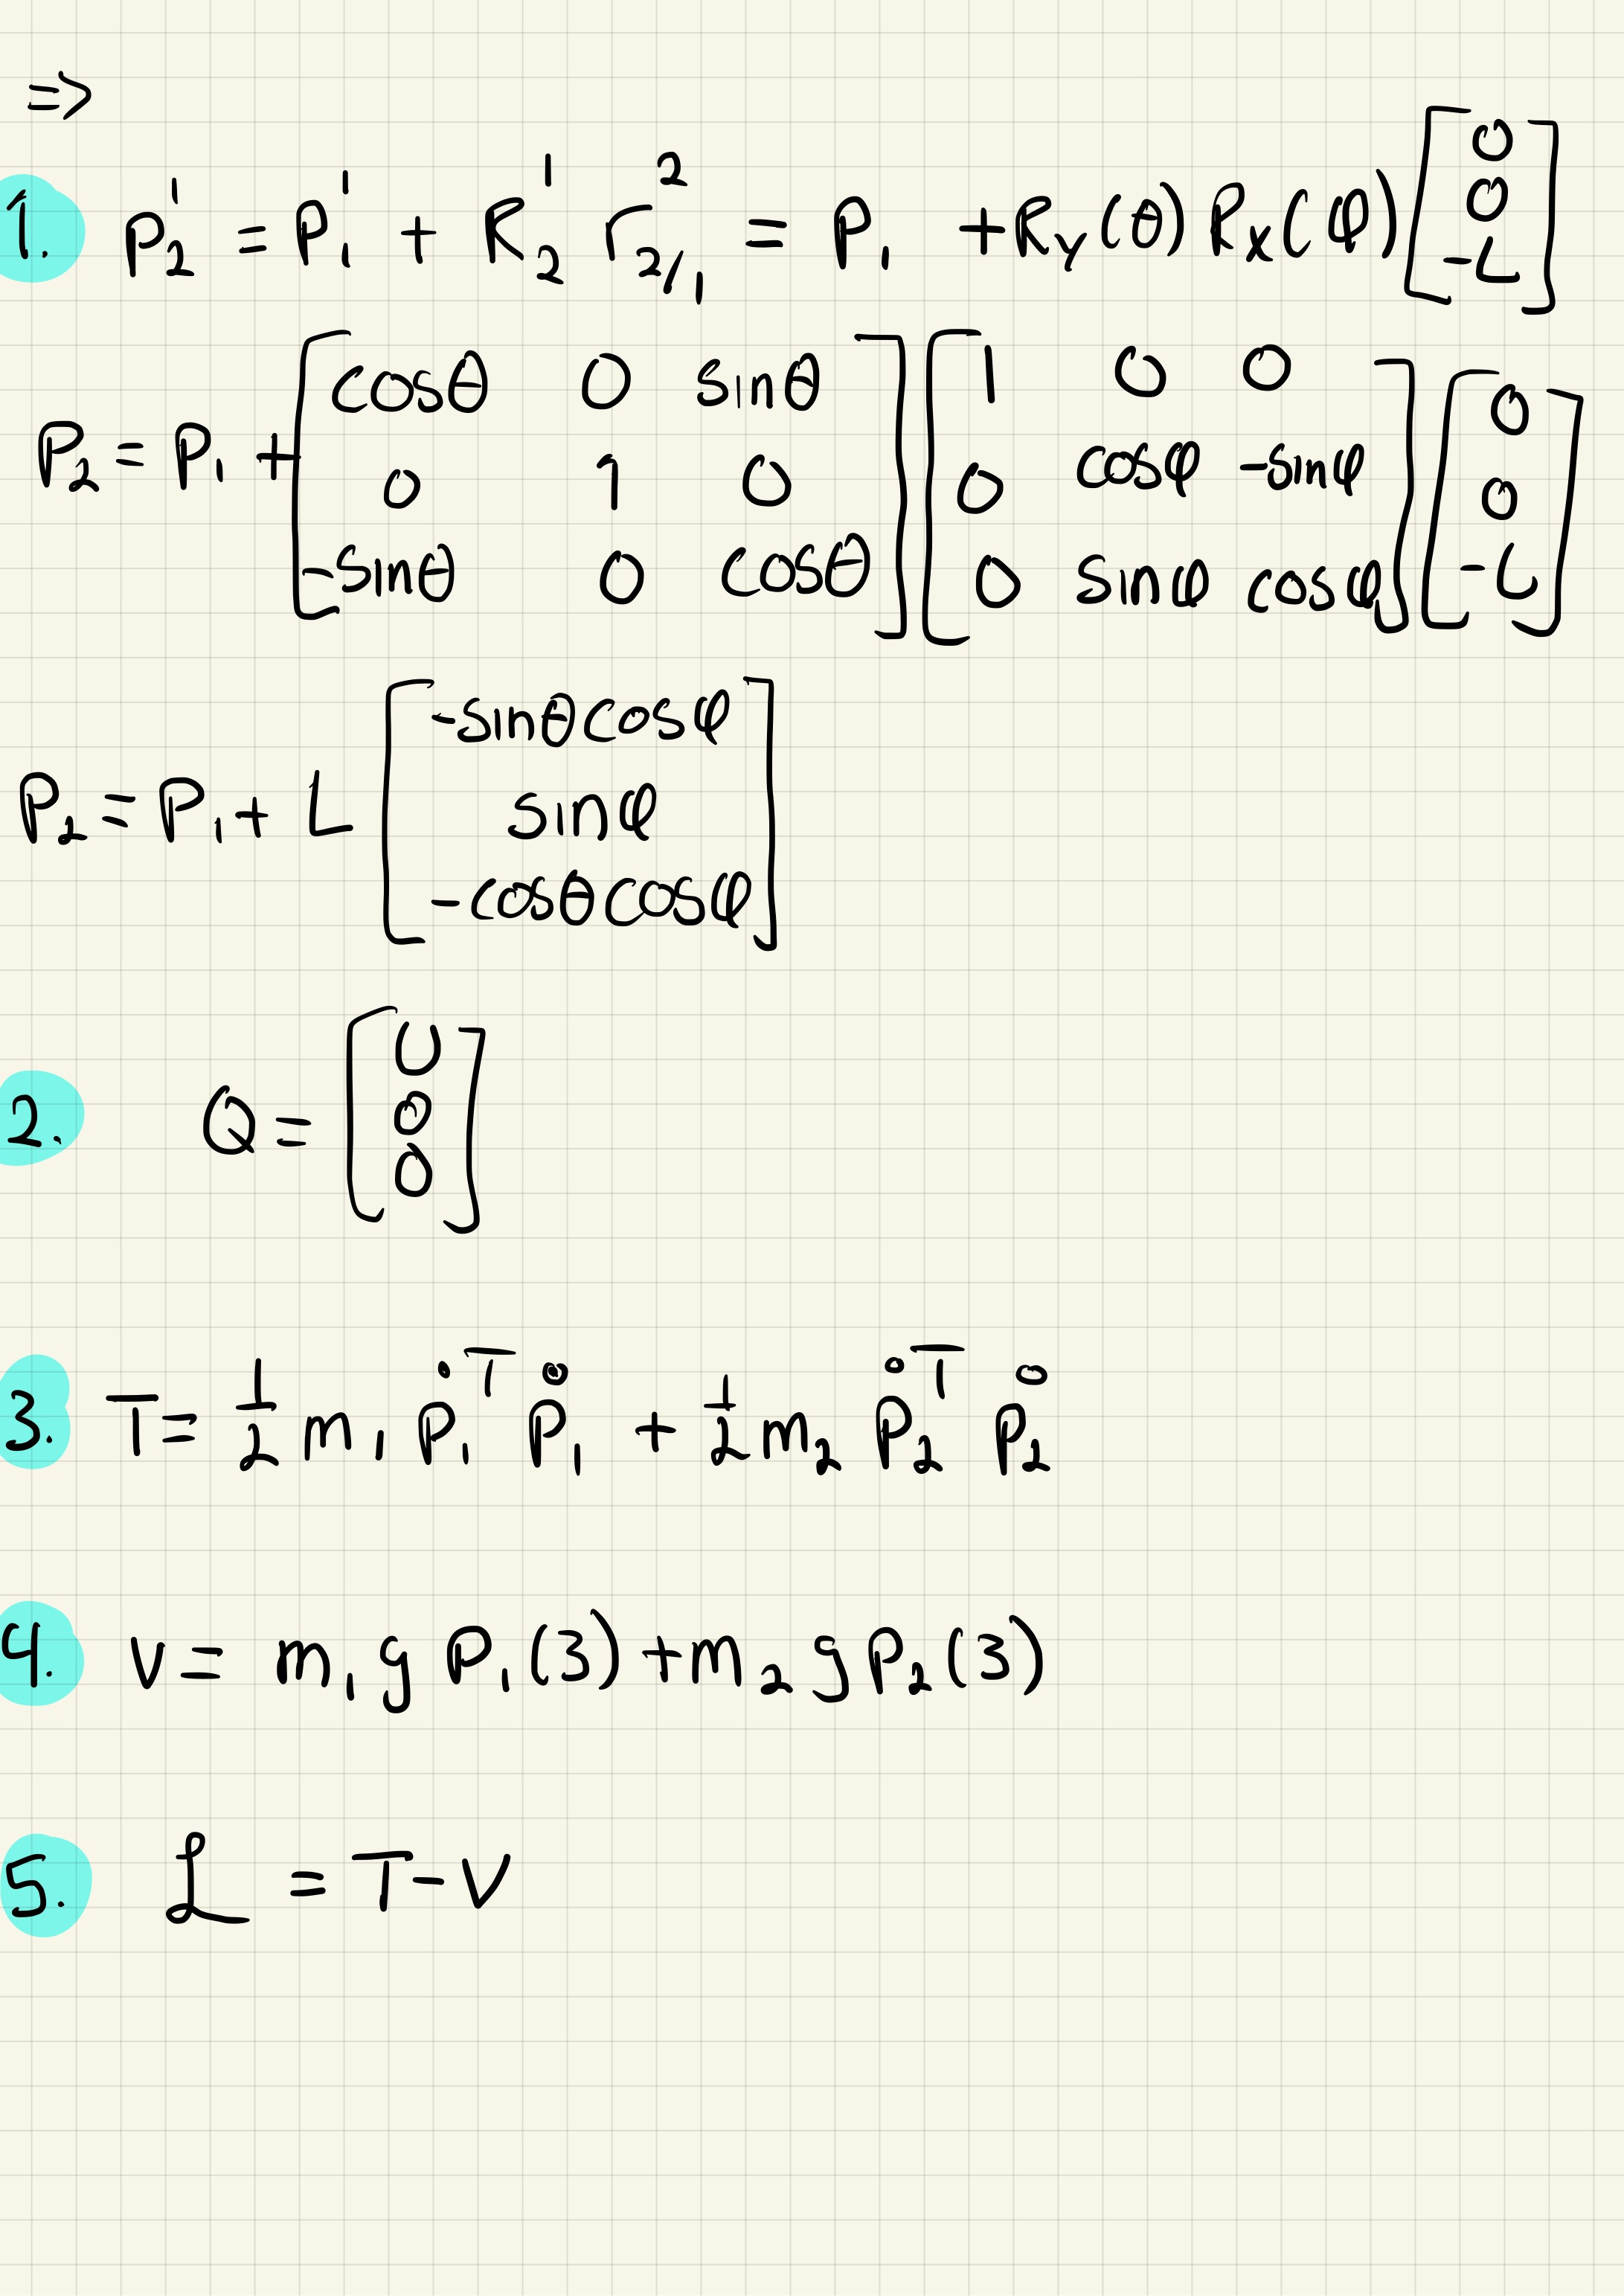 =>
1. P₂¹ = P₁¹ + R₂¹ r₂/₁² = P₁ + R_Y(θ) R_X(φ) [0; 0; -L]
P₂ = P₁ + [cosθ 0 sinθ; 0 1 0; -sinθ 0 cosθ] [1 0 0; 0 cosφ -sinφ; 0 sinφ cosφ] [0; 0; -L]
P₂ = P₁ + L [-sinθcosφ; sinφ; -cosθcosφ]
2. Q = [U; 0; 0]
3. T = 1/2 m₁ Ṗ₁ᵀ Ṗ₁ + 1/2 m₂ Ṗ₂ᵀ Ṗ₂
4. V = m₁ g P₁(3) + m₂ g P₂(3)
5. ℒ = T - V